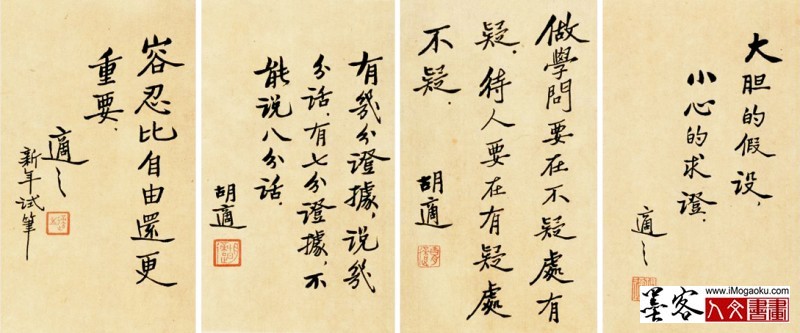 大胆的假設，
小心的求證．
適之
做學問要在不疑處有
疑．待人要在有疑處
不疑．
胡適
有幾分證據，說幾
分話．有七分證據，不
能说八分話．
胡適
容忍比自由還更
重要．
適之
新年試筆
www.iMogaoku.com
墨客人文書畫